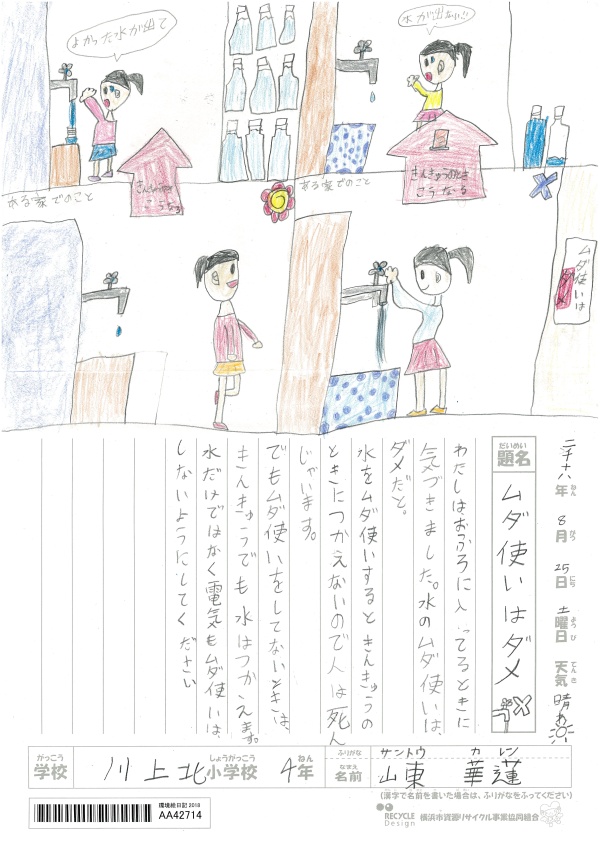 ムダ使いは
ダメ
水が出ない!!
きんきゅうのとき
こうなる
ある家でのこと
よかった水が出て
きんきゅうのとき
こうなる
ある家でのこと
二千十八年 8月 25日 土曜日 天気 晴れ
ねん がつ にち ようび てんき
だいめい
題名
ムダ使いはダメ
わたしは、おふろに入ってるときに
気づきました。水のムダ使いは、
ダメだと。
水をムダ使いするときんきゅうの
ときにつかえないので人は死ん
じゃいます。
でもムダ使いをしてないときは、
きんきゅうでも水はつかえます。
水だけではなく電気もムダ使いは、
しないようにしてください
がっこう しょうがっこう ねん ふりがな サントウ カレン
学校 川上北小学校 4年 なまえ 名前 山東 華蓮
(漢字で名前を書いた場合は、ふりがなをふってください)
環境絵日記 2018
AA42714
RECYCLE
Design
横浜市資源リサイクル事業協同組合